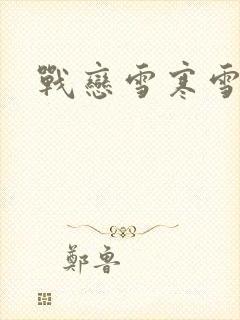 戰戀雪寒雪
鄭魯